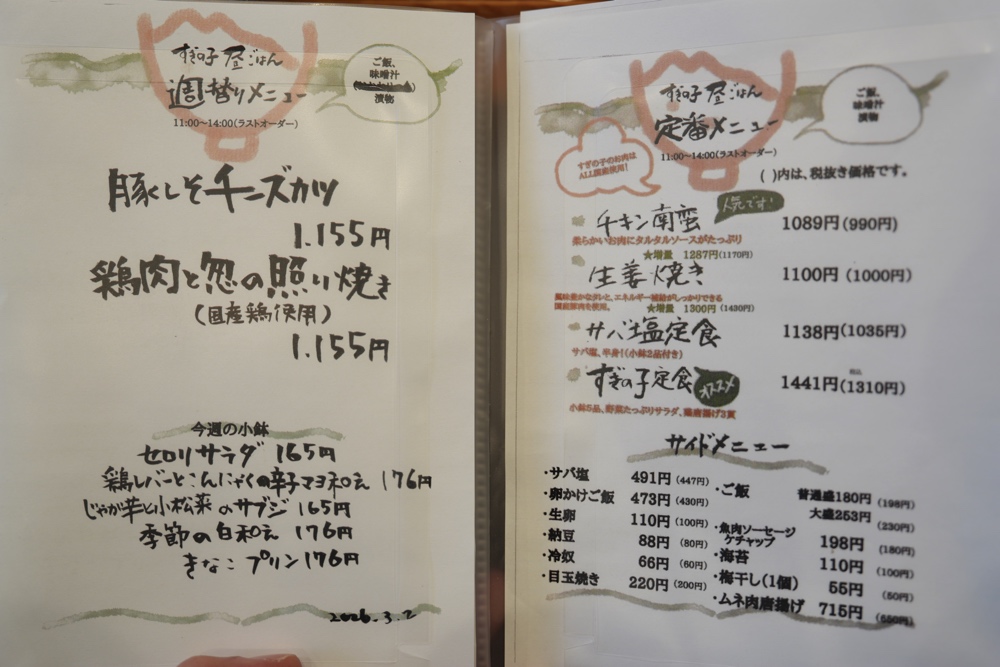 すぎの子 昼ごはん
週替りメニュー
11:00~14:00(ラストオーダー)
ご飯、
味噌汁
漬物
豚しそチーズカツ
1.155円
鶏肉と忽の照り焼き
(国産鶏使用)
1.155円
今週の小鉢
セロリサラダ 165円
鶏レバーとこんにゃくの辛子マヨ和え 176円
じゃが芋と小松菜のサブジ 165円
季節の白和え 176円
きなこプリン 176円
2026.3.2
すぎの子 昼ごはん
定番メニュー
11:00~14:00(ラストオーダー)
ご飯、
味噌汁
漬物
すぎの子のお肉は
ALL国産使用!
( )内は、税抜き価格です。
人気です!
チキン南蛮 1089円(990円)
柔らかいお肉にタルタルソースがたっぷり
★増量 1287円(1170円)
生姜焼き 1100円(1000円)
風味豊かなタレと、エネルギー補給がしっかりできる
国産豚肉を使用。 ★増量 1300円(1430円)
サバ塩定食 1138円(1035円)
サバ塩、半身!(小鉢2品付き)
税込
すぎの子定食 オススメ 1441円(1310円)
小鉢5品、野菜たっぷりサラダ、鶏唐揚げ3貫
サイドメニュー
・サバ塩 491円(447円)
・卵かけご飯 473円(430円)
・生卵 110円(100円)
・納豆 88円(80円)
・冷奴 66円(60円)
・目玉焼き 220円(200円)
・ご飯 普通盛180円(198円)
大盛253円(230円)
・魚肉ソーセージ
ケチャップ 198円(180円)
・海苔 110円(100円)
・梅干し(1個) 55円(50円)
・ムネ肉唐揚げ 715円(650円)